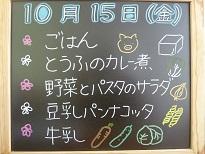 10月15日(金)
ごはん
とうふのカレー煮
野菜とパスタのサラダ
豆乳パンナコッタ
牛乳